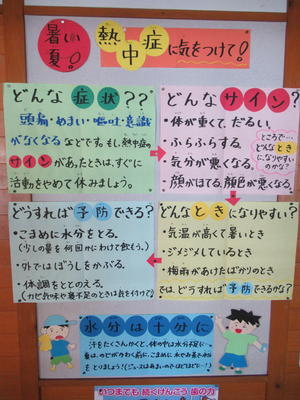 暑い夏!
熱中症に気をつけて!
どんな症状??
頭痛・めまい・嘔吐・意識
がなくなるなどです。もし、熱中症の
サインがあったときは、すぐに
活動をやめて休みましょう。
どんなサイン?
・体が重くて、だるい。
・ふらふらする。
・気分が悪くなる。
・顔がほてる。顔色が悪くなる。
ところで…
どんなとき
になりやすい
のかな?
どんなときになりやすい?
・気温が高くて暑いとき
・ジメジメしているとき
・梅雨があけたばかりのとき
では、どうすれば予防できるかな?
どうすれば予防できる?
・こまめに水分をとる。
(少しの量を何回かにわけて飲もう。)
・外ではぼうしをかぶる。
・体調をととのえる。
水分は十分に
汗をたくさんかくと、体の中は水分不足に…
をとりましょう!
いつまでも続くけんこう歯の力